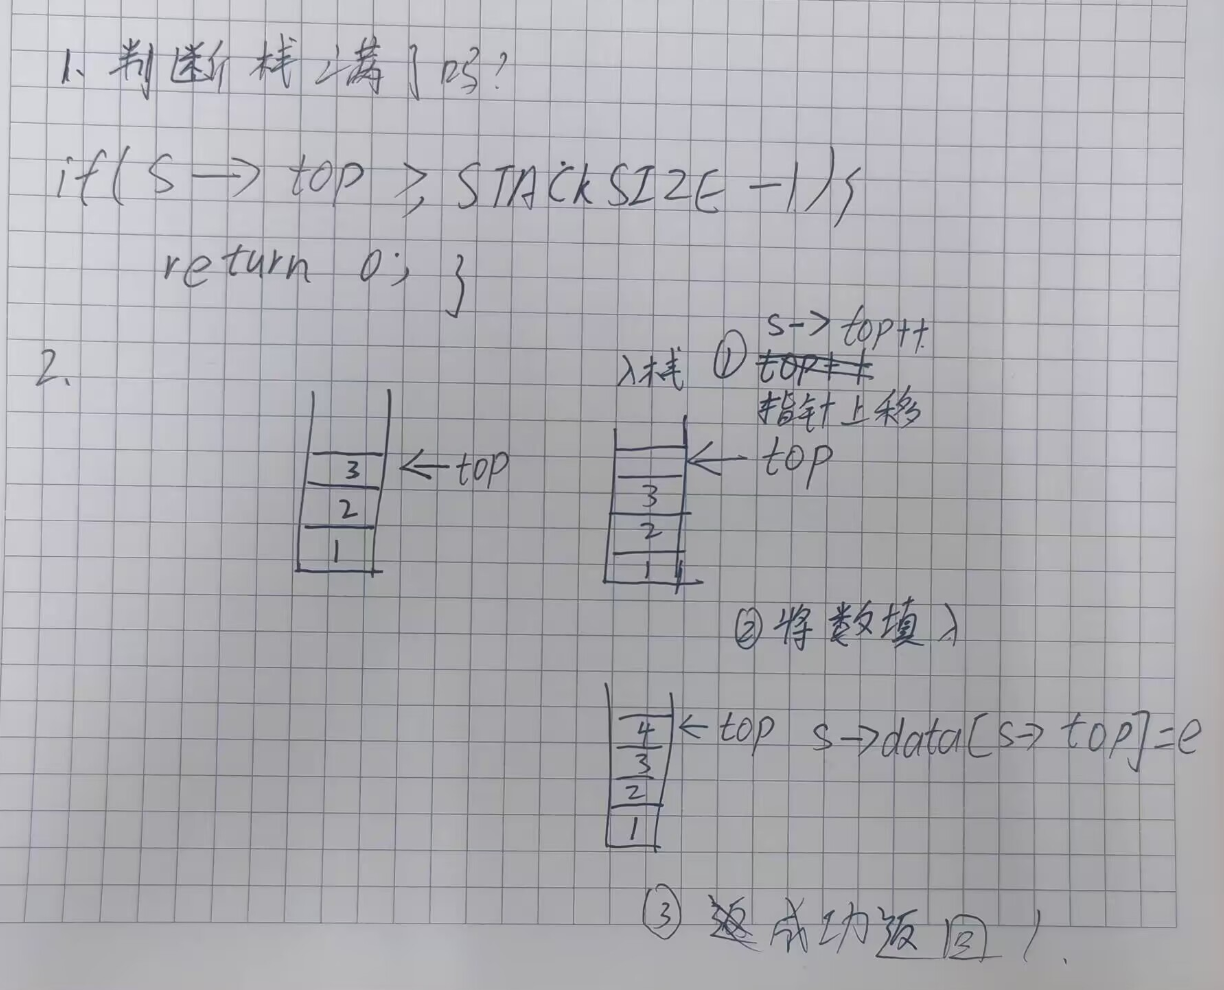 1、判断栈满了吗?
if(s→top ≥ STACKSIZE-1){
return 0; }
2.
3 ←top
2
1
入栈 ① s->top++
指针上移
←top
3
2
1
②将数填入
4 ←top s→data[s→top]=e
3
2
1
③ 成功返回1.